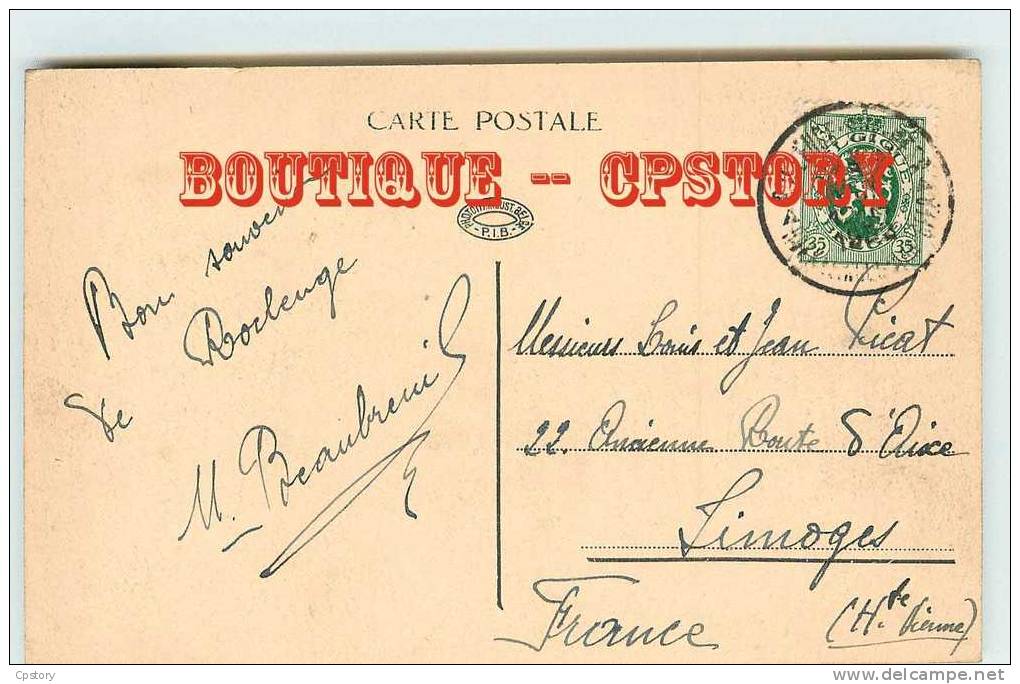 CARTE POSTALE
BOUTIQUE -- CPSTORY
PHOTOTYP. INDUST. BELGE
- P.I.B. -
BELGIQUE
35 35
Bon souvenir
de Roclenge
M. Beaubreuil
Messieurs Louis et Jean Picat
22. Ancienne Route d'Aixe
Limoges
France
(Hte Vienne)
Cpstory
www.delcampe.net